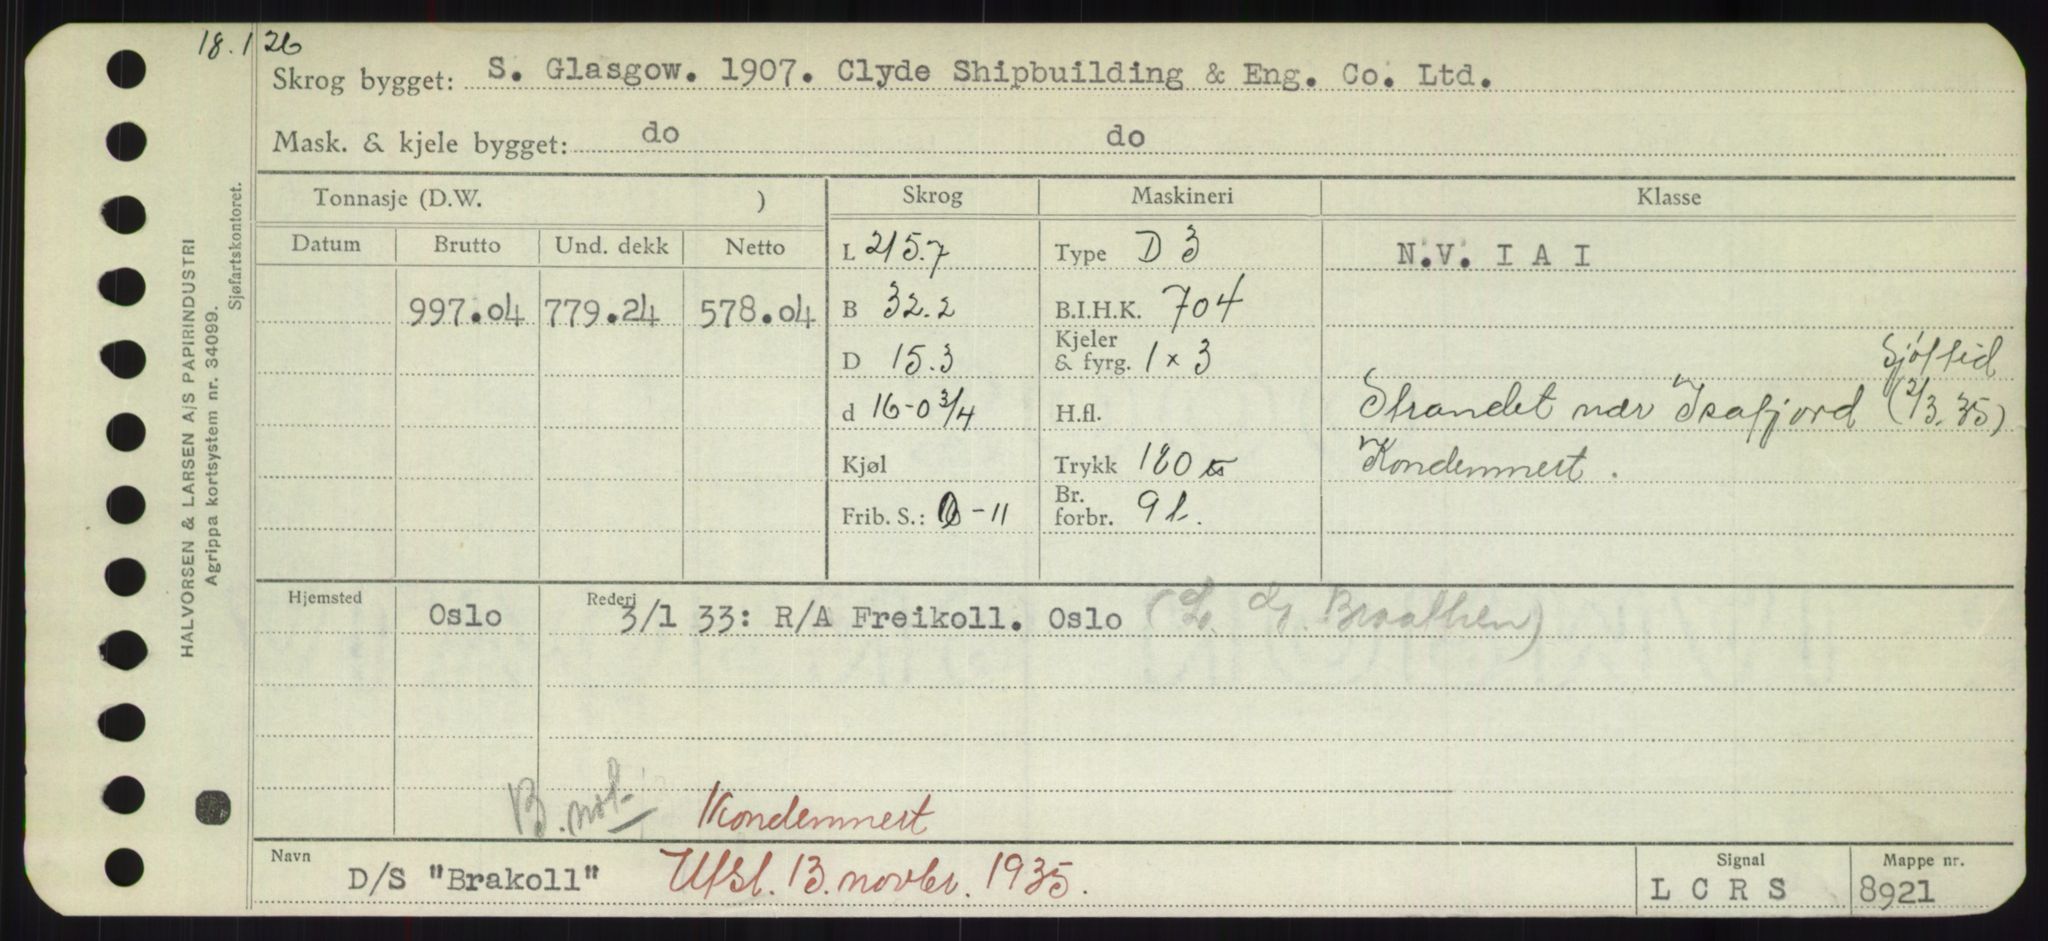 18.1 26
Skrog bygget: S. Glasgow. 1907. Clyde Shipbuilding & Eng. Co. Ltd.
Mask. & kjele bygget: do do
HALVORSEN & LARSEN A/S PAPIRINDUSTRI
Agrippa kortsystem nr. 34099.
Sjøfartskontoret.
Tonnasje (D.W. ) Skrog Maskineri Klasse
Datum Brutto Und. dekk Netto L 215.7 Type D 3 N.V. I A I
997.04 779.24 578.04 B 32.2 B.I.H.K. 704
D 15.3 Kjeler & fyrg. 1 x 3 Sjøftid
d 16-0 3/4 H.fl. Strandet nær Isafjord (2/3.35)
Kjøl Trykk 180 Kondemnert.
Frib. S.: 0-11 Br. forbr. 9 t.
Hjemsted Rederi
Oslo 3/1 33: R/A Freikoll. Oslo (L. G. Braathen)
B. not. Kondemnert
Navn Signal Mappe nr.
D/S "Brakoll" Utsl. 13. novbr. 1935. L C R S 8921